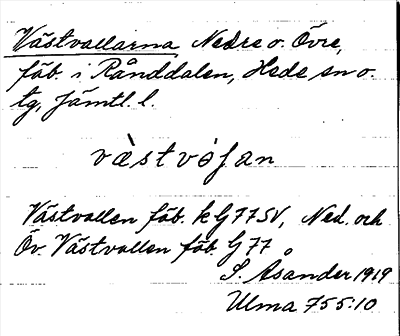 Västvallarna Nedre o. Övre,
fäb. i Rånddalen, Hede sn o.
tg, Jämtl. l.
västvòḷan
Västvallen fäb. k G77SV, Ned. och
Öv. Västvallen fäb. G77
S. Åsander 1919
Ulma 755:10